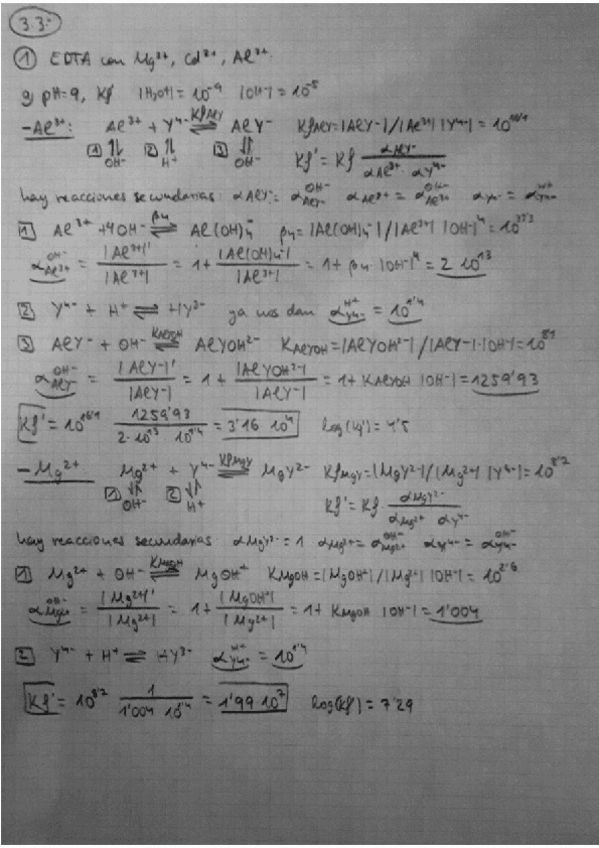 3.3:
① EDTA con Mg²⁺, Cd²⁺, Al³⁺
a) pH=9, Kf |H₃O⁺|=10⁻⁹ |OH⁻|=10⁻⁵
-Al³⁺: Al³⁺ + Y⁴⁻ ⇌ AlY⁻ KfAlY=|AlY⁻|/|Al³⁺||Y⁴⁻|=10^16'1
1 ⇅ OH⁻ 2 ⇅ H⁺ 3 ⇅ OH⁻ Kf'=Kf αAlY⁻/αAl³⁺ αY⁴⁻
hay reacciones secundarias: αAlY⁻=α^OH⁻ AlY⁻ αAl³⁺=α^OH⁻ Al³⁺ αY⁴⁻=α^H⁺ Y⁴⁻
1 Al³⁺+4OH⁻ ⇌ Al(OH)₄⁻ β₄=|Al(OH)₄⁻|/|Al³⁺||OH⁻|⁴=10^33'3
α^OH⁻ Al³⁺ = |Al³⁺|'/|Al³⁺| = 1+ |Al(OH)₄⁻|/|Al³⁺| = 1+ β₄·|OH⁻|⁴=2·10¹³
2 Y⁴⁻ + H⁺ ⇌ HY³⁻ ya nos dan α^H⁺ Y⁴⁻ = 10^1'4
3 AlY⁻ + OH⁻ ⇌ AlYOH²⁻ KAlYOH=|AlYOH²⁻|/|AlY⁻|·|OH⁻|=10^8'1
α^OH⁻ AlY⁻ = |AlY⁻|'/|AlY⁻| = 1+ |AlYOH²⁻|/|AlY⁻| = 1+ KAlYOH |OH⁻|=1259'93
Kf'=10^16'1 1259'93/2·10¹³ 10^1'4 = 3'16 10⁴ log(Kf')=4'5
-Mg²⁺: Mg²⁺ + Y⁴⁻ ⇌ MgY²⁻ KfMgY=|MgY²⁻|/|Mg²⁺||Y⁴⁻|=10^8'7
1 ⇅ OH⁻ 2 ⇅ H⁺ Kf'=Kf· αMgY²⁻/αMg²⁺ αY⁴⁻
hay reacciones secundarias αMgY²⁻=1 αMg²⁺=α^OH⁻ Mg²⁺ αY⁴⁻=α^OH⁻ Y⁴⁻
1 Mg²⁺ + OH⁻ ⇌ MgOH⁺ KMgOH=|MgOH⁺|/|Mg²⁺||OH⁻|=10^2'6
α^OH⁻ Mg²⁺ = |Mg²⁺|'/|Mg²⁺| = 1+ |MgOH⁺|/|Mg²⁺| = 1+ KMgOH |OH⁻|=1'004
2 Y⁴⁻ + H⁺ ⇌ HY³⁻ α^H⁺ Y⁴⁻ = 10^1'4
Kf'=10^8'7 1/1'004 10^1'4 = 1'99 10⁷ log(Kf')=7'29